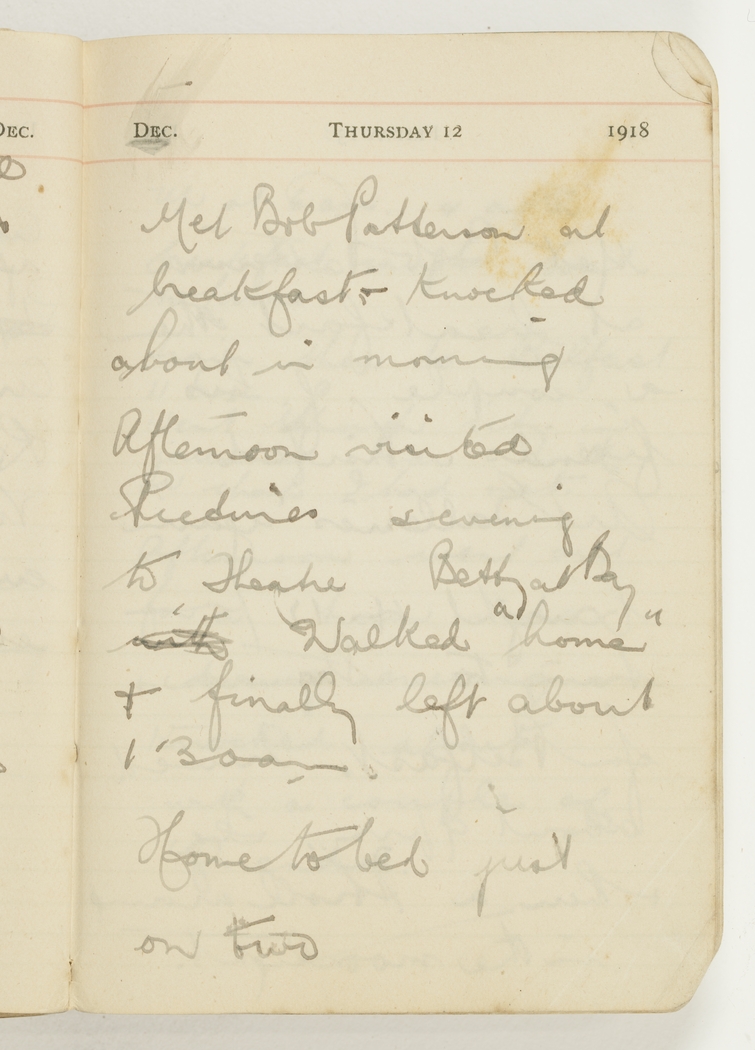 DEC.
DEC. THURSDAY 12 1918
Met Bob Patterson at
breakfast & Knocked
about in morning
Afternoon visited
evening
to Theatre Betty at Bay
with Walked "home"
+ finally left about
1.30 am.
Home to bed just
on two